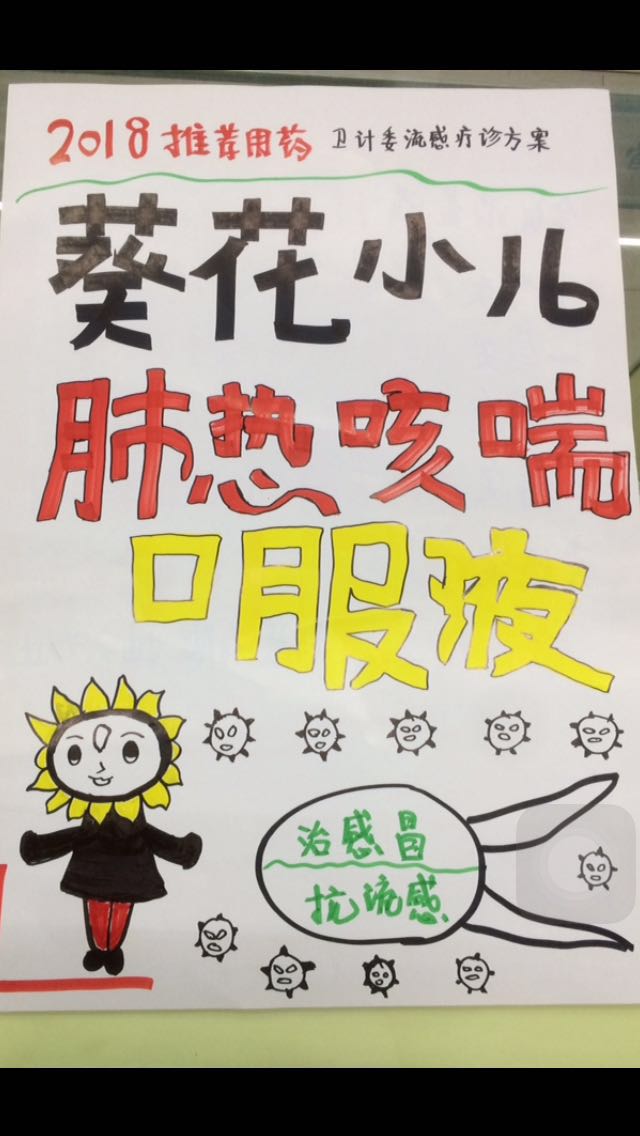 2018推荐用药 卫计委流感疗诊方案
葵花小儿
肺热咳喘
口服液
治感冒
抗流感